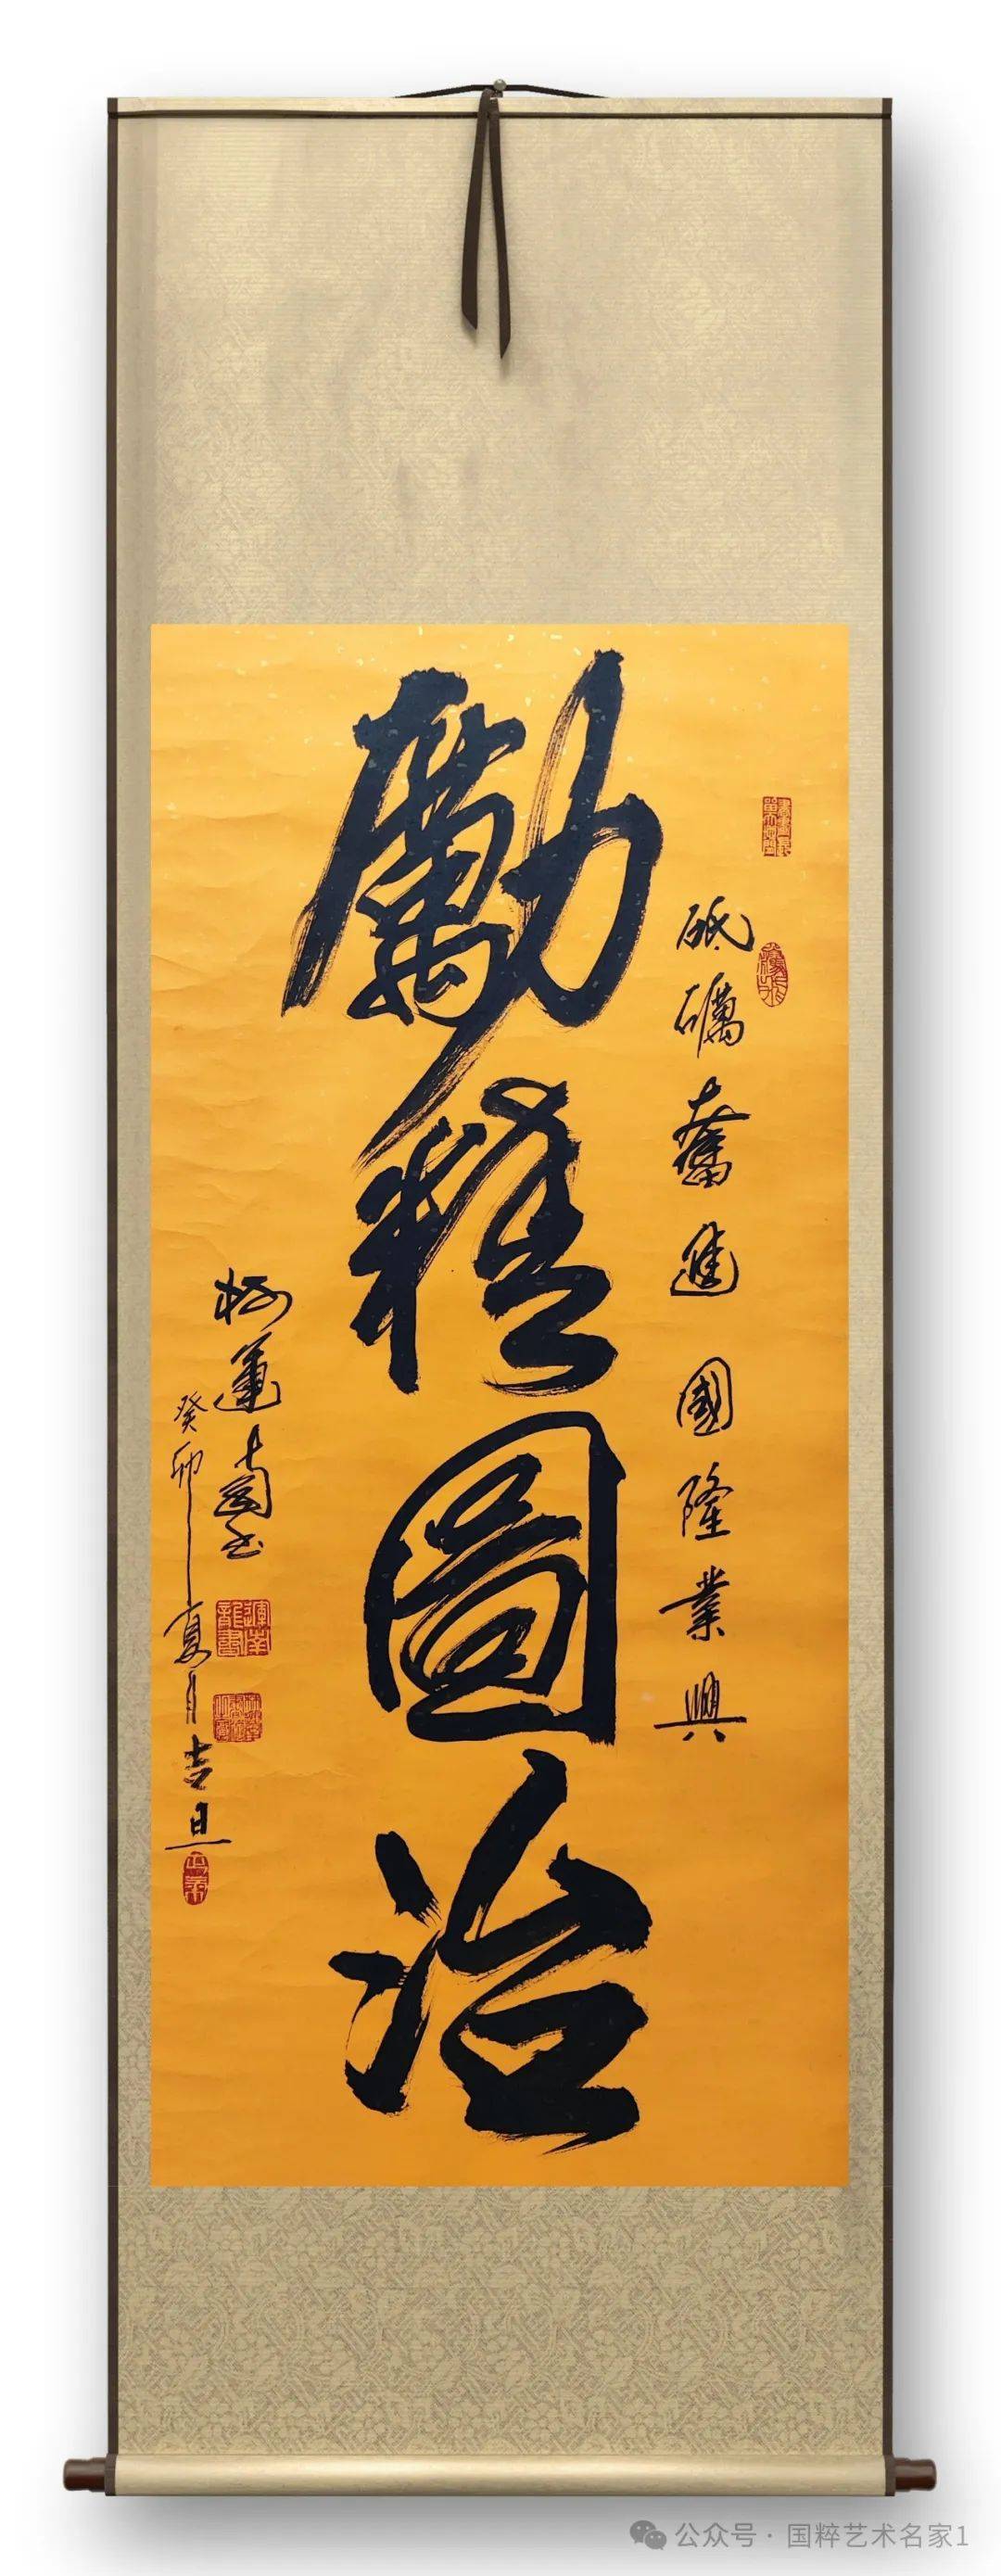 砥礪奮進 國隆業興
勵精圖治
癸卯夏月吉旦
公众号 · 国粹艺术名家1